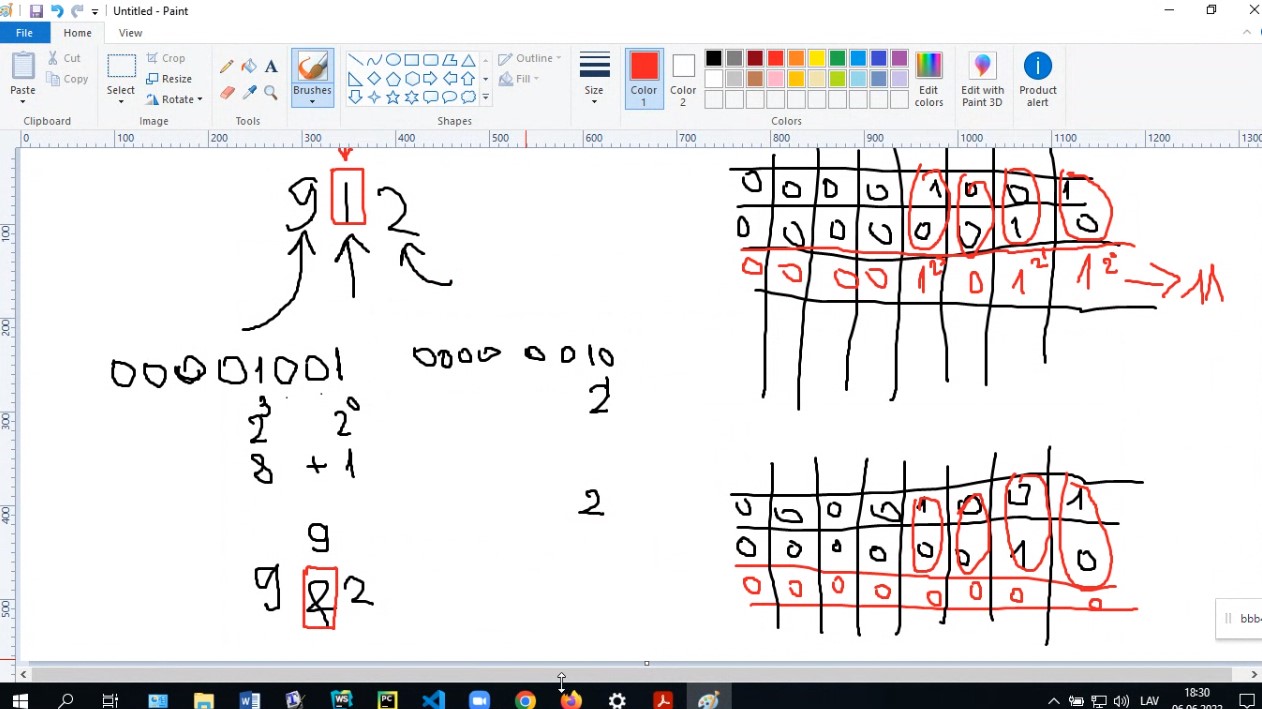 Untitled - Paint
File Home View
Paste
Cut
Copy
Clipboard
Select
Crop
Resize
Rotate
Image
Tools
Brushes
Shapes
Outline
Fill
Size
Color 1
Color 2
Edit colors
Colors
Edit with Paint 3D
Product alert
0 100 200 300 400 500 600 700 800 900 1000 1100 1200 1300
100
200
300
400
500
9 1 2
00001001 0000 0010
2³ 2⁰ 2
8 + 1
9 2
9 & 2
0 0 0 0 1 0 0 1
0 0 0 0 0 0 1 0
0 0 0 0 1 2³ 0 1 2¹ 1 2⁰ → 11
0 0 0 0 1 0 0 1
0 0 0 0 0 0 1 0
0 0 0 0 0 0 0 0
bbb
LAV
18:30
06.06.2022